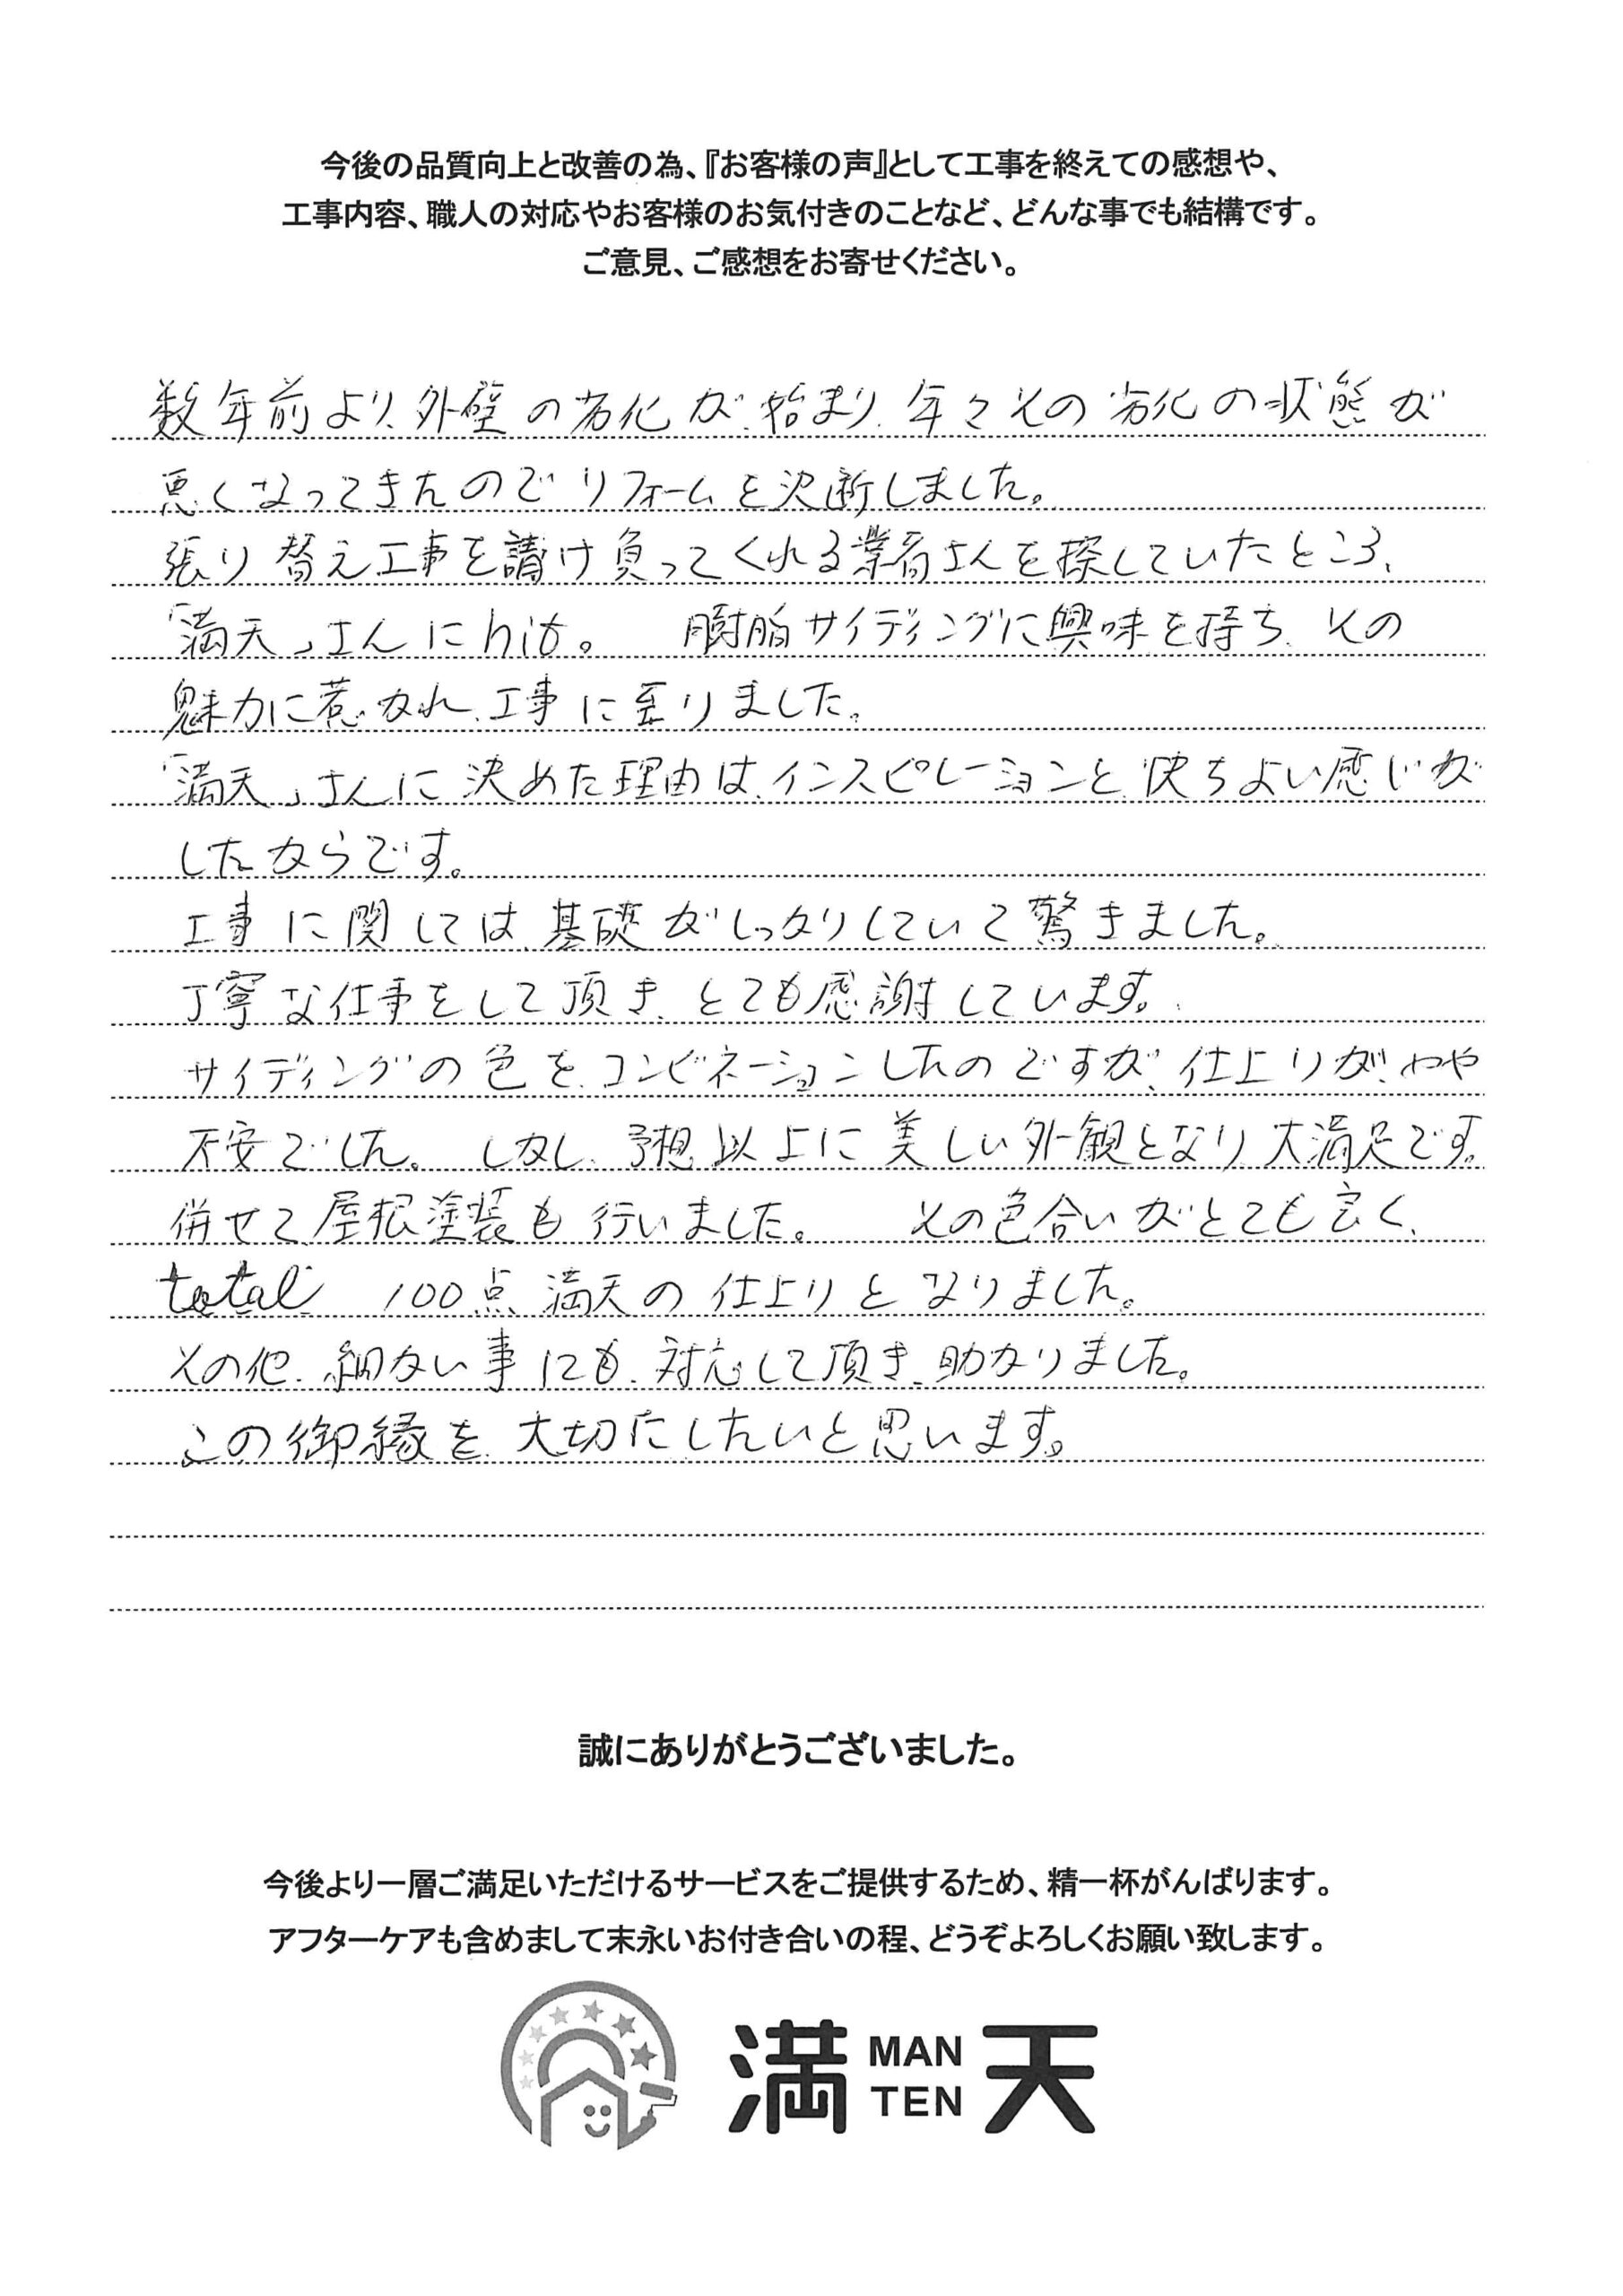 今後の品質向上と改善の為、『お客様の声』として工事を終えての感想や、
工事内容、職人の対応やお客様のお気付きのことなど、どんな事でも結構です。
ご意見、ご感想をお寄せください。
数年前より、外壁の劣化が、始まり、年々その劣化の状態が
悪くなってきたのでリフォームを決断しました。
張り替え工事を請け負ってくれる業者さんを探していたところ、
「満天」さんにhit。 樹脂サイディングに興味を持ち、その
魅力に惹かれ、工事に至りました。
「満天」さんに決めた理由は、インスピレーションと、快ちよい感じが
したからです。
工事に関しては、基礎がしっかりしていて驚きました。
丁寧な仕事をして頂き、とても感謝しています。
サイディングの色を、コンビネーションしたのですが、仕上りが、やや
不安でした。 しかし、予想以上に美しい外観となり、大満足です。
併せて、屋根塗装も行いました。 その色合いがとても良く、
total 100点満天の仕上りとなりました。
その他、細かい事にも、対応して頂き、助かりました。
この御縁を、大切にしたいと思います。
誠にありがとうございました。
今後より一層ご満足いただけるサービスをご提供するため、精一杯がんばります。
アフターケアも含めまして末永いお付き合いの程、どうぞよろしくお願い致します。
満 MAN TEN 天